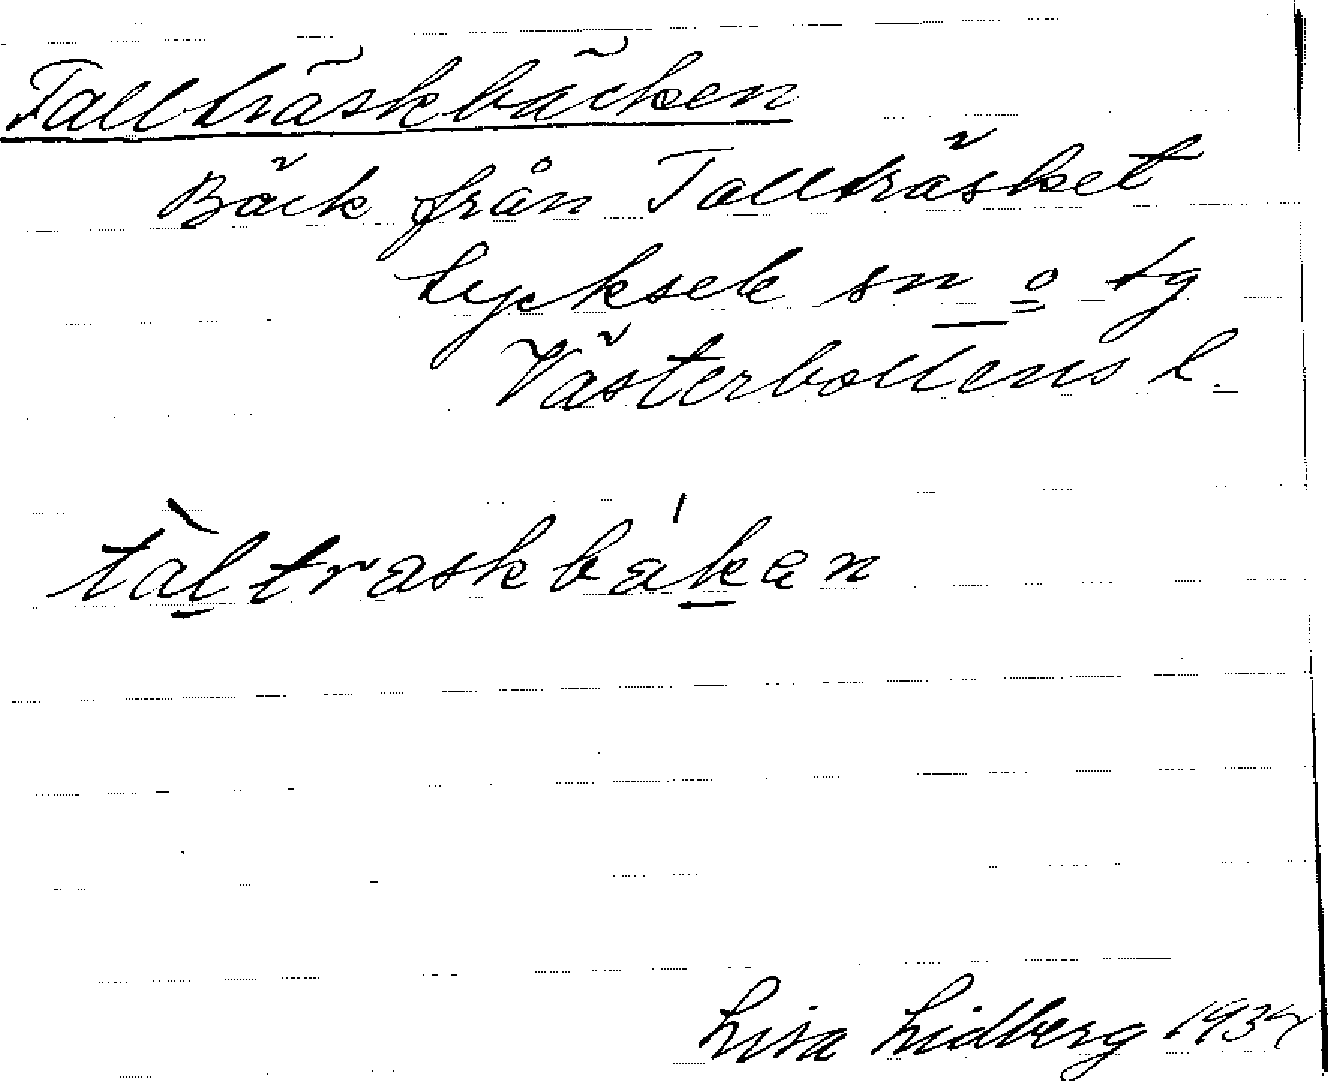 Tallträskbäcken
Bäck från Tallträsket
Lycksele sn o tg
Västerbottens l.
tàl̲traskbák̲an
Lisa Lidberg 1934